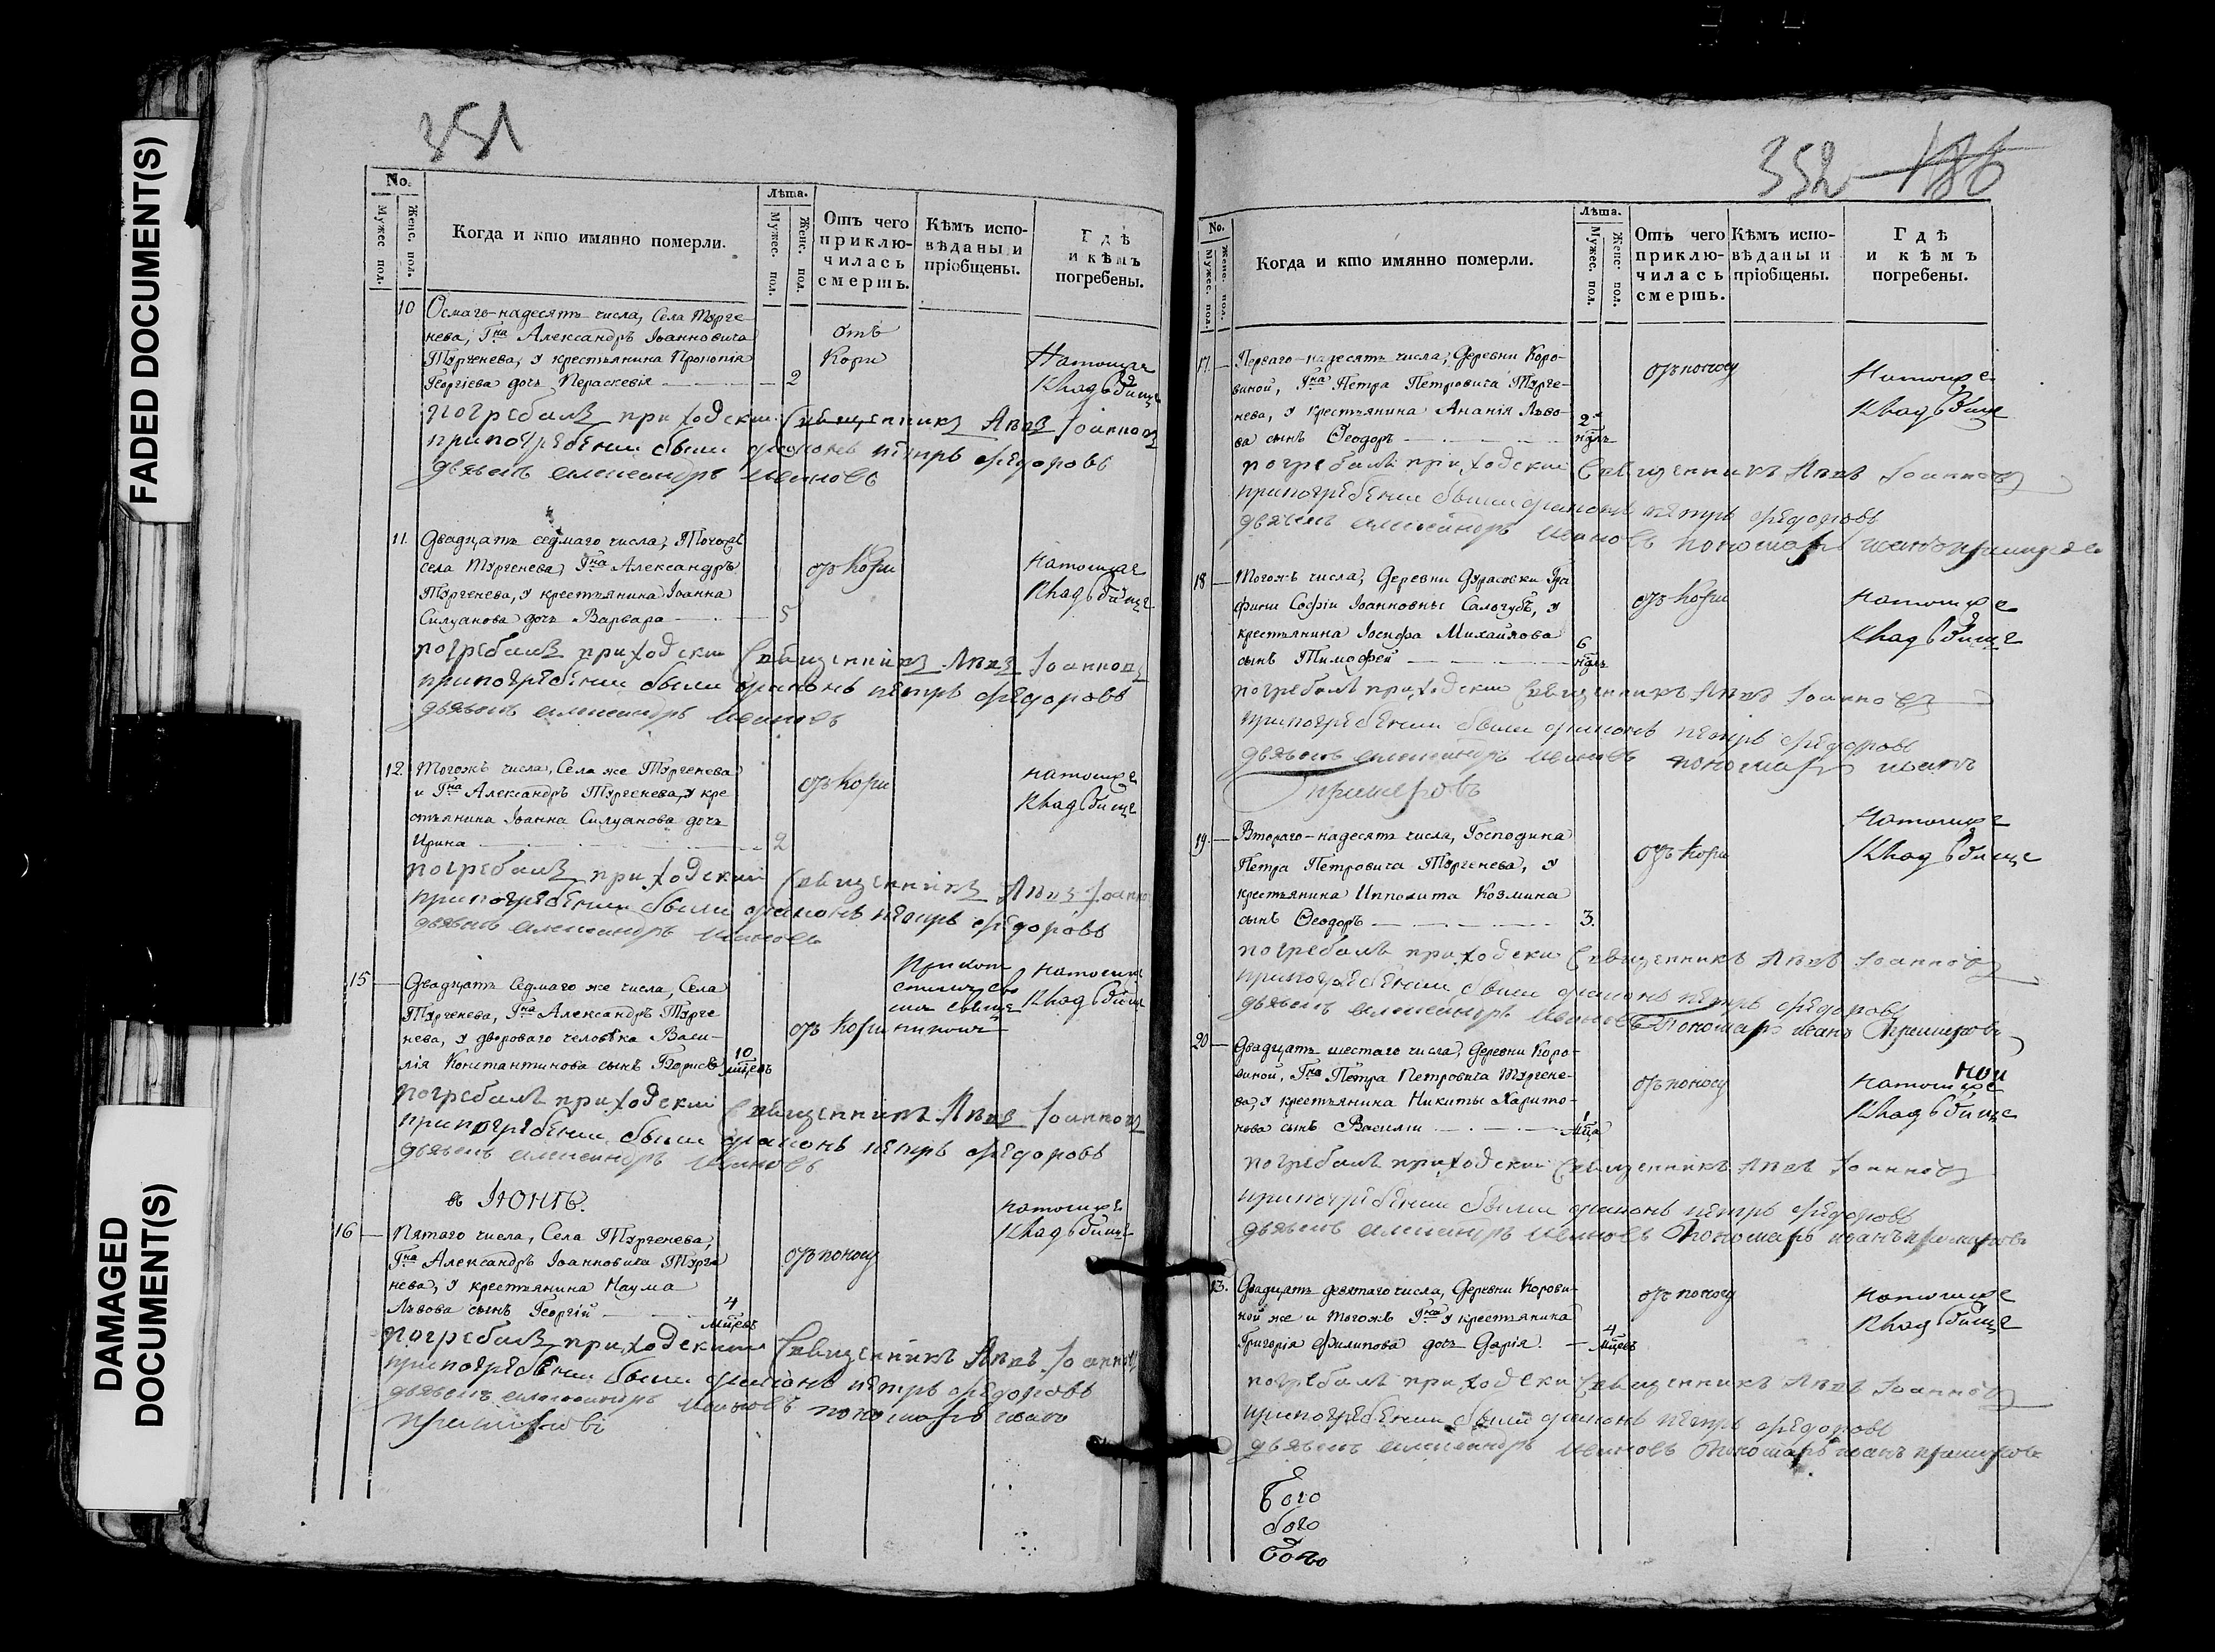 FADED DOCUMENT(S)
DAMAGED
DOCUMENT(S)
351
No.
Мужес. пол.
Женс. пол.
Когда и кто имянно померли.
Лѣта.
Мужес. пол.
Женс. пол.
Отъ чего
приклю-
чилась
смерть.
Кѣмъ испо-
вѣданы и
пріобщены.
Гдѣ
и кѣмъ
погребены.
10 Осмаго-надесять числа, Села Турге-
нева, Гна Александръ Іоанновича
Тургенева, у крестьянина Прокопія
Георгіева дочь Пераскевія 2
отъ
Кори
На
Кладбище
погребалъ приходскии Священникъ Іоанновъ
при погребении были диаконъ петръ федоровъ
дьячекъ александръ ивановъ
11. Двадцать седмаго числа, Тогожъ
села Тургенева, Гна Александръ
Тургенева, у крестьянина Іоанна
Силуанова дочь Варвара 5
отъ Кори
Кладбище
погребалъ приходскии Священникъ Іоанновъ
при погребении были диаконъ петръ федоровъ
дьячекъ александръ ивановъ
12. Тогожъ числа, Села же Тургенева
и Гна Александръ Тургенева, у кре
стьянина Іоанна Силуанова дочь
Ирина 2
отъ кори
Кладбище
погребалъ приходский Священникъ
при погребении были диаконъ петръ федоровъ
дьячекъ александръ ивановъ
15 Двадцать Седмаго же числа, Села
Тургенева, Гна Александръ Турге
нева, у двороваго человѣка Васи-
лія Константинова сынъ Борисъ 10 мцевъ
отъ Кори
Кладбище
погребалъ приходский Священникъ Іоанновъ
при погребении были диаконъ петръ федоровъ
дьячекъ александръ ивановъ
въ ІЮНѢ.
16 Пятаго числа, Села Тургенева,
Гна Александръ Іоанновича Турге
нева, у крестьянина Наума
Львова сынъ Георгій 4 мцевъ
отъ поносу
Кладбище
погребалъ приходскии Священникъ
при погребении были диаконъ петръ федоровъ
дьячекъ александръ ивановъ пономарь иванъ
352 186
No.
Мужес. пол.
Женс. пол.
Когда и кто имянно померли.
Лѣта.
Мужес. пол.
Женс. пол.
Отъ чего
приклю-
чилась
смерть.
Кѣмъ испо-
вѣданы и
пріобщены.
Гдѣ
и кѣмъ
погребены.
17. Перваго-надесять числа, Деревни Коро-
виной, Гна Петра Петровича Турге-
нева, у крестьянина Ананія Льво-
ва сынъ Ѳеодоръ 2 нѣдль
отъ поносу
Кладбище
погребалъ приходскии Священникъ Іоанновъ
при погребении были диаконъ петръ федоровъ
дьячекъ александръ ивановъ пономарь
18 Тогожъ числа, Деревни Дурасовки Гра
фини Софіи Іоанновны Салогубъ, у
крестьянина Іосифа Михайлова
сынъ Тимофей 6 нѣдль
отъ кори
Кладбище
погребалъ приходскии Священникъ Іоанновъ
при погребении были диаконъ петръ федоровъ
дьячекъ александръ ивановъ пономарь иванъ
19. Втораго-надесять числа, Господина
Петра Петровича Тургенева, у
крестьянина Ипполита Козмина
сынъ Ѳеодоръ 3.
отъ кори
Кладбище
погребалъ приходскии Священникъ Іоанновъ
при погребении были диаконъ петръ федоровъ
дьячекъ александръ ивановъ пономарь иванъ
20 Двадцать шестаго числа, Деревни Коро-
виной, Гна Петра Петровича Тургене-
ва, у крестьянина Никиты Харито-
нова сынъ Василій 1 мца
отъ поносу
Кладбище
погребалъ приходскии Священникъ Іоанновъ
при погребении были диаконъ петръ федоровъ
дьячекъ александръ ивановъ Пономарь иванъ
13. Двадцать девятаго числа, Деревни Корови-
ной же и тогожъ Гна у крестьянина
Григорія Филипова дочь Дарія. 4 мцевъ
отъ поносу
Кладбище
погребалъ приходскии Священникъ Іоанновъ
при погребении были диаконъ петръ федоровъ
дьячекъ александръ ивановъ Пономарь иванъ